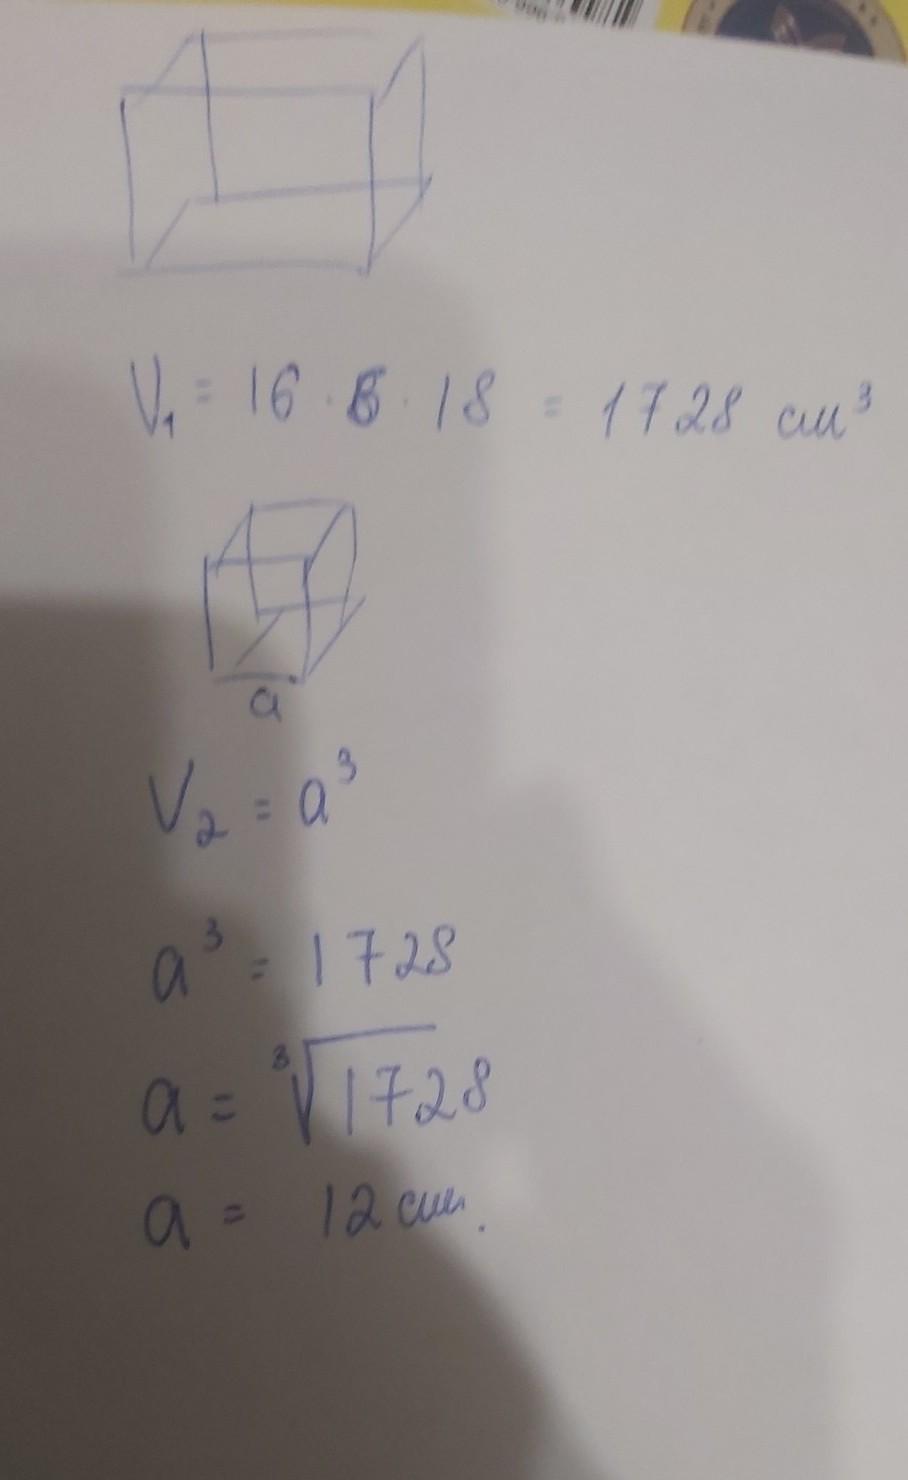 V₁ = 16 · 6 · 18 = 1728 см³
a
V₂ = a³
a³ = 1728
a = ³√1728
a = 12 см.